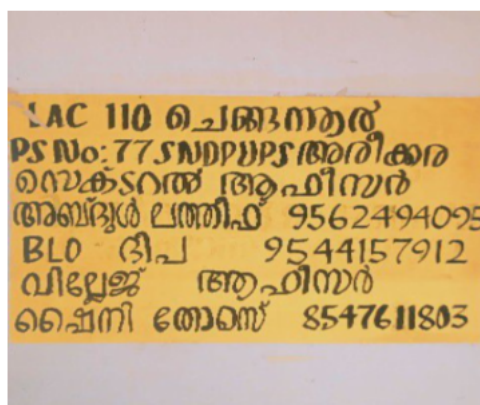 LAC 110 ചെങ്ങന്നൂർ
PS No: 77 SNDPUPS അരീക്കര
സെക്ടറൽ ആഫീസർ
അബ്ദുൾ ലത്തീഫ് 9562494095
BLO ദീപ 9544157912
വില്ലേജ് ആഫീസർ
ഷൈനി തോസെ് 8547611803